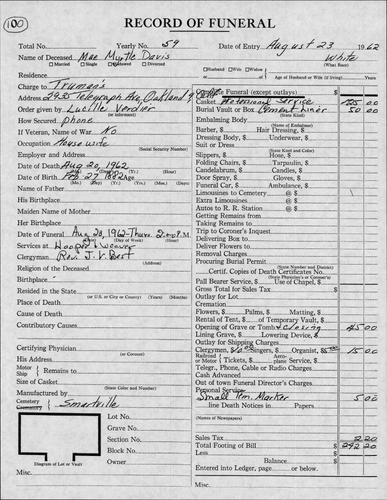 100
RECORD OF FUNERAL
Total No. Yearly No. 59 Date of Entry August 23, 1962
Name of Deceased Mae Myrtle Davis White
Married Single Widowed Divorced Husband Wife Widow (What Race)
Residence or Age of Husband or Wife (if living) Years
Charge to Truman's
Address 2935 Telegraph Ave, Oakland 9, Calif
Order given by Lucille Verdine
(or informant)
How Secured phone
If Veteran, Name of War No
Occupation Housewife
(Social Security Number)
Employer and Address
Date of Death Aug 20, 1962
(Mo.) (Day) (Yr.) (Hour)
Date of Birth Feb 27 1882 Age
(Mo.) (Day) (Yr.) (Yrs.) (Mo.) (Days)
Name of Father
His Birthplace
Maiden Name of Mother
Her Birthplace
Services at Hooper & Weaver
Clergyman Rev. J. V. Best
(Address)
Religion of the Deceased
Birthplace
Resided in the State
(or U.S. or City or County) (Years) (Months)
Place of Death
Cause of Death
Contributory Causes
Certifying Physician
(or Coroner)
His Address
Motor
Ship Remains to
Size of Casket
(State Color and Number)
Manufactured by
Cemetery
Crematory Smartville
Lot No.
Grave No.
Section No.
Block No.
Owner
Diagram of Lot or Vault
Misc.
Complete Funeral (except outlays) $
Casket Service
Burial Vault or Box Cement Liner 50 00
(State Kind)
Embalming Body
(Name of Embalmer)
Barber, $ Hair Dressing, $
Dressing Body, $ Underwear, $
Suit or Dress
(State Kind and Color)
Slippers, $ Hose, $
Folding Chairs, $ Tarpaulin, $
Candelabrum, $ Candles, $
Door Spray, $ Gloves, $
Funeral Car, $ Ambulance, $
Limousines to Cemetery @ $
Extra Limousines @ $
Autos to R. R. Station @ $
Getting Remains from
Taking Remains to
Trip to Coroner's Inquest
Delivering Box to
Deliver Flowers to
Removal Charges
Procuring Burial Permit
(State Number and District)
Certif. Copies of Death Certificates No.
(State Physician's or Coroner's)
Pall Bearer Service, $ Use of Chapel, $
Gross Total for Sales Tax $
Outlay for Lot
Cremation
Flowers, $ Palms, $ Matting, $
Rental of Tent, $ of Temporary Vault, $
Opening of Grave or Tomb & closing 45 00
Lining Grave, $ Lowering Device, $
Outlay for Catering
Clergymen, $ Singers, $ Organist, $5.00 15 00
Railroad
or Motor Tickets, $ Aeroplane Service, $
Telegr., Phone, Cable or Radio Charges
Cash Advanced
Out of town Funeral Director's Charges
Personal Service
Small Tem. Marker 5 00
line Death Notices in Papers
(Names of Newspapers)
Sales Tax 2 20
Total Footing of Bill $ 292 20
Less $
Balance $
Entered into Ledger, page or below.
Misc.